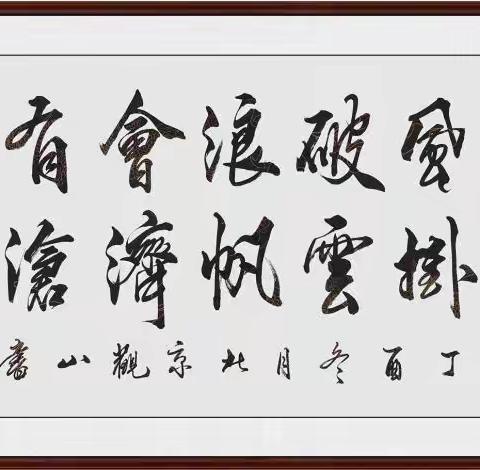 風破浪會有
掛雲帆濟滄
丁酉冬月北京觀山書